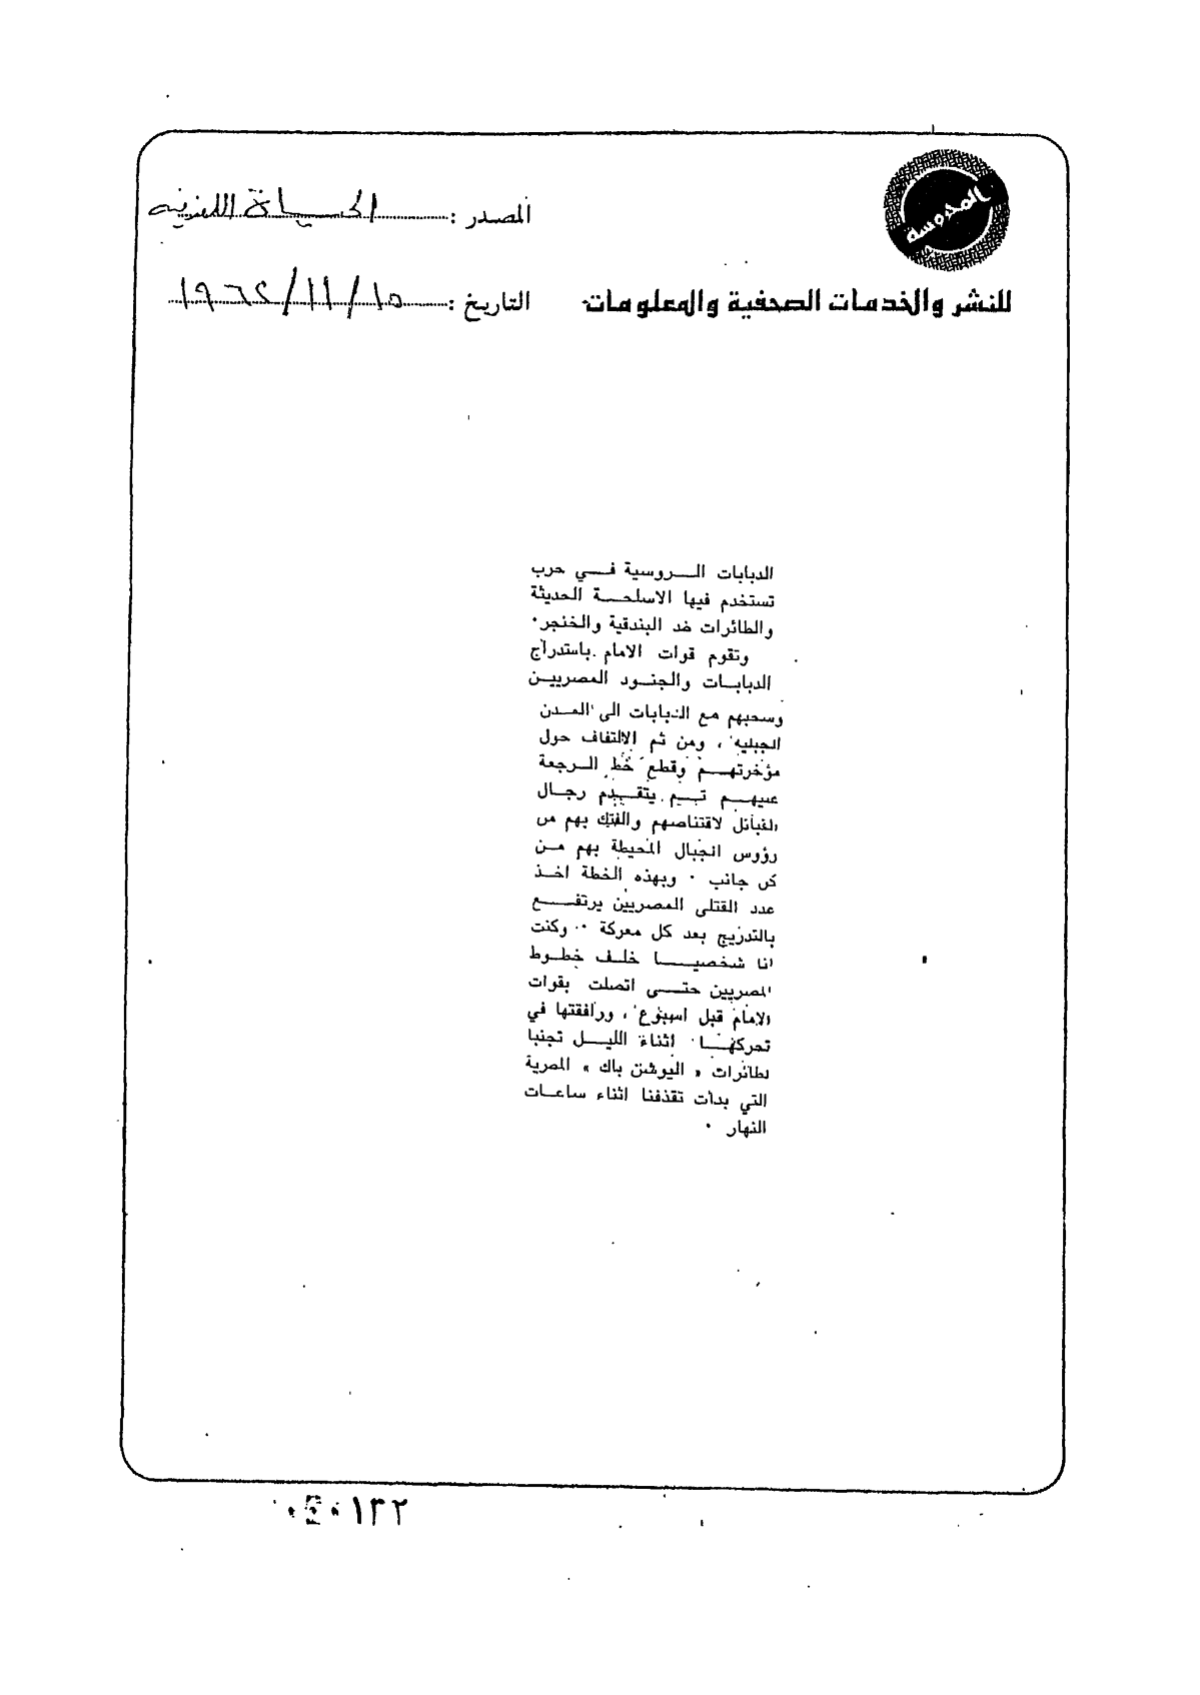 المحروسة
للنشر والخدمات الصحفية والمعلومات
المصدر : الحياة
التاريخ : ١٥/١١/١٩٦٢
الدبابات الروسية في حرب
تستخدم فيها الاسلحة الحديثة
والطائرات ضد البندقية والخنجر.
وتقوم قوات الامام باستدراج
الدبابات والجنود المصريين
وسحبهم مع الدبابات الى المدن
الجبلية ، ومن ثم الالتفاف حول
مؤخرتهم وقطع خط الرجعة
عليهم ثم يتقدم رجال
القبائل لاقتناصهم والفتك بهم من
رؤوس الجبال المحيطة بهم من
كل جانب . وبهذه الخطة اخذ
عدد القتلى المصريين يرتفع
بالتدريج بعد كل معركة . وكنت
انا شخصيا خلف خطوط
المصريين حتى اتصلت بقوات
الامام قبل اسبوع ، ورافقتها في
تحركها اثناء الليل تجنبا
لطائرات « اليوشن باك » المصرية
التي بدأت تقذفنا اثناء ساعات
النهار .